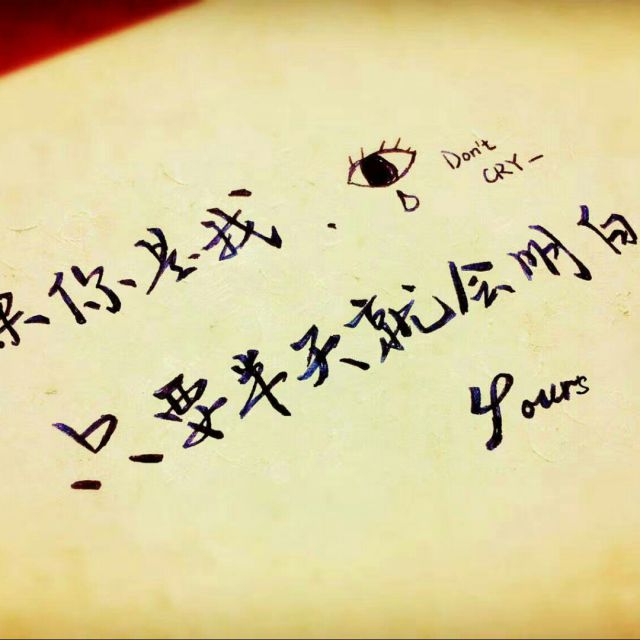 Don't
CRY_
果你是我.
只要半天就会明白
Yours